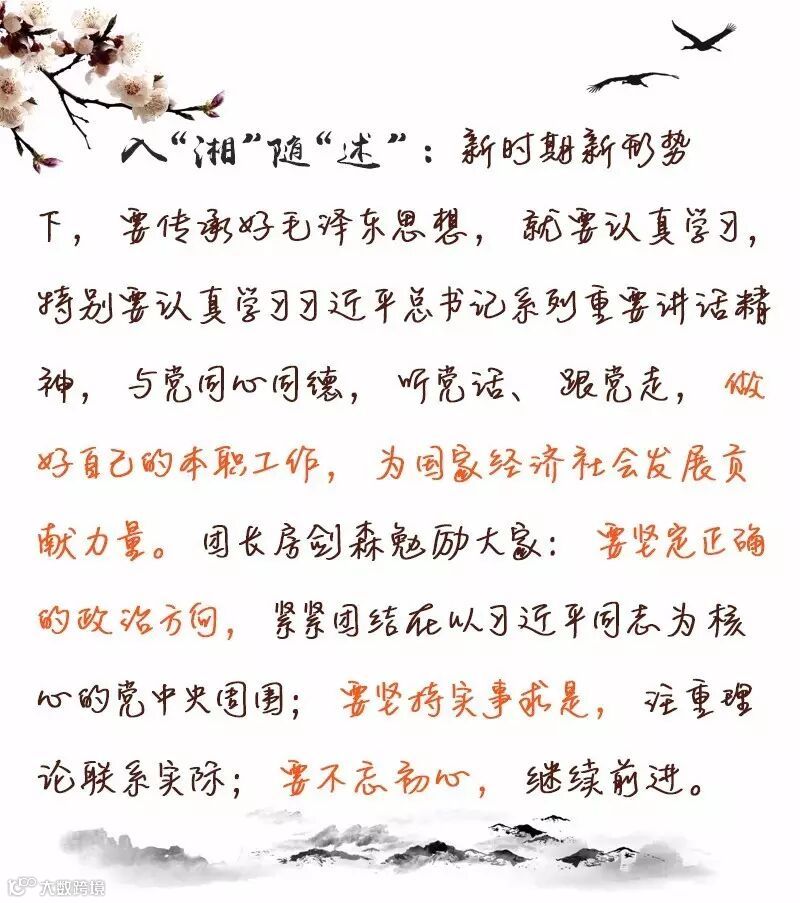 入“湘”随“述”：新时期新形势
下，要传承好毛泽东思想，就要认真学习，
特别要认真学习习近平总书记系列重要讲话精
神，与党同心同德，听党话、跟党走，做
好自己的本职工作，为国家经济社会发展贡
献力量。团长房剑森勉励大家：要坚定正确
的政治方向，紧紧团结在以习近平同志为核
心的党中央周围；要坚持实事求是，注重理
论联系实际；要不忘初心，继续前进。
大数跨境